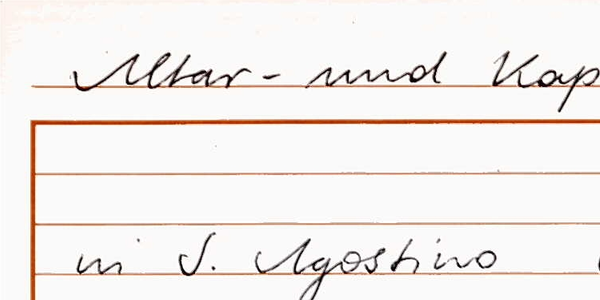 Altar- und Kap
in S. Agostino